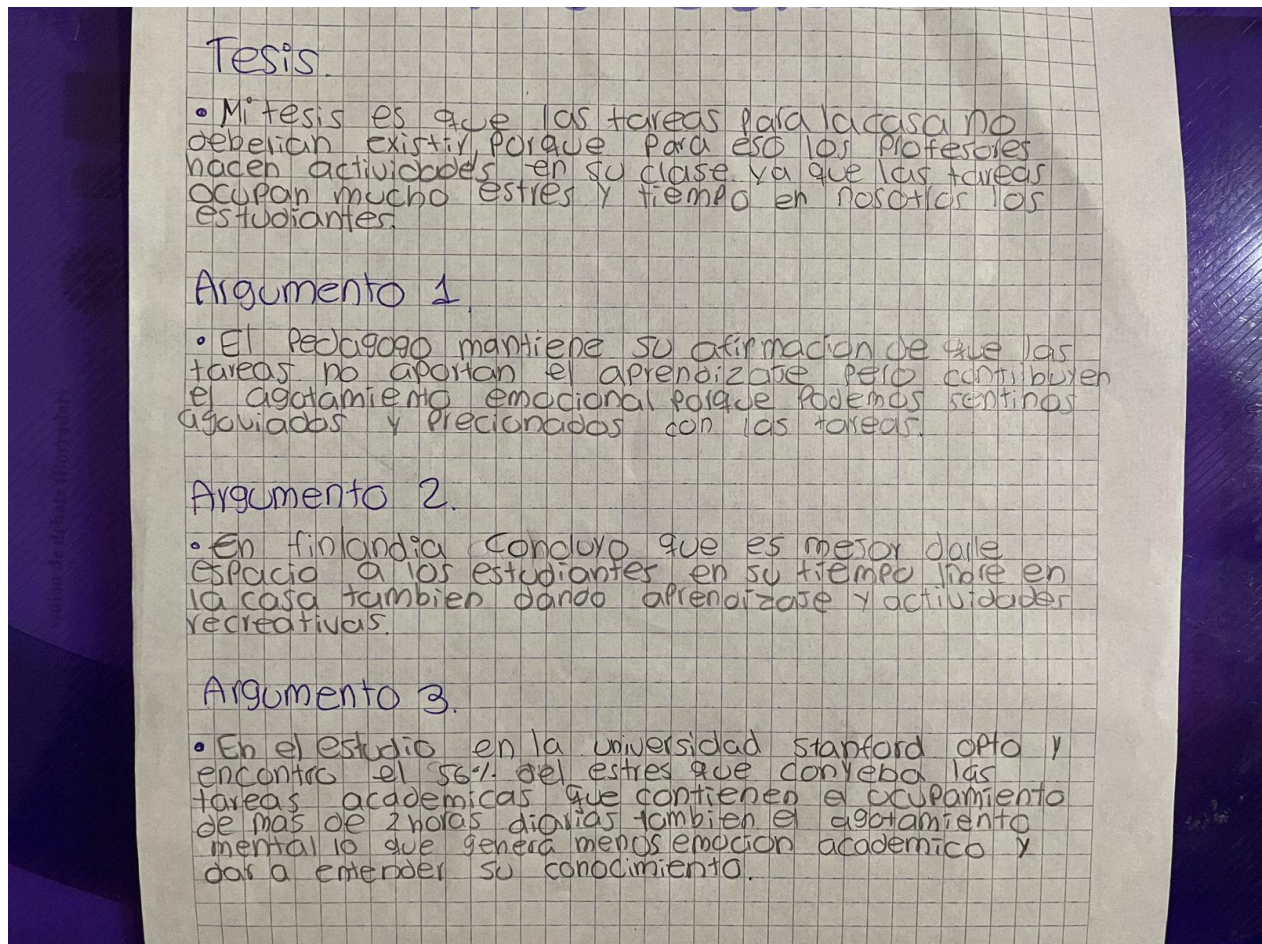 Tesis.
• Mi tesis es que las tareas para la casa no
deberian existir, porque para eso los profesores
hacen actividades en su clase ya que las tareas
ocupan mucho estres y tiempo en nosotros los
estudiantes.
Argumento 1.
• El Pedagogo mantiene su afirmacion de que las
tareas no aportan el aprendizaje pero contribuyen
el agotamiento emocional porque podemos sentirnos
agoviados y precionados con las tareas.
Argumento 2.
• En finlandia concluyo que es mejor darle
espacio a los estudiantes en su tiempo libre en
la casa tambien dando aprendizaje y actividades
recreativas.
Argumento 3.
• En el estudio en la universidad stanford opto y
encontro el 56% del estres que conyeba las
tareas academicas que contienen el ocupamiento
de mas de 2 horas diarias tambien el agotamiento
mental lo que genera menos emocion academico y
dar a entender su conocimiento.